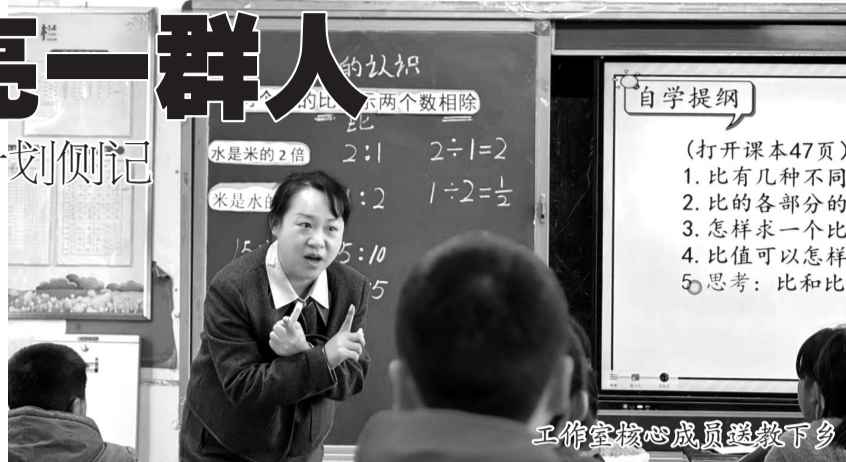 亮一群人
计划侧记
栏
的认识
的比 示两个数相除
比
水是米的2倍 2:1 2÷1=2
米是水的 1:2 1÷2=1/2
5:10
自学提纲
(打开课本47页)
1. 比有几种不同
2. 比的各部分的
3. 怎样求一个比
4. 比值可以怎样
5. 思考：比和比
工作室核心成员送教下乡